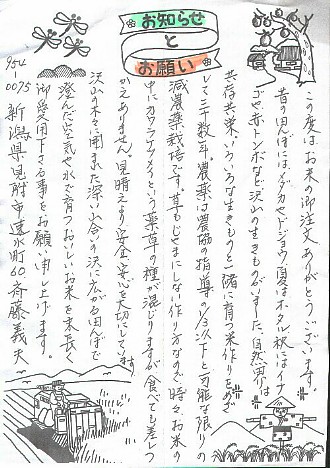 お知らせ
と
お願い
この度はお米の御注文ありがとうございます。
昔の田んぼには、メダカやドジョウ、夏はホタル、秋にはイナ
ゴや赤トンボなど沢山の生きものがいました。自然界は
共存共栄、いろいろな生きものと一緒に育つ米作りをめざ
して三十数年。農薬は農協の指導の1/3以下と可能な限りの
減農薬栽培です。草もじゃまにしない作り方なので、時々お米の
中にカワラケツメイという薬草の種が混じりますが食べても差しつ
かえありません。見晴えより安全、安心を大切にしています
沢山の木々に囲まれた深い山合の沢に広がる田んぼで
澄んだ空気や水で育ったおいしいお米を末長く
御愛用下さる事をお願い申し上げます。
954-0075 新潟県見附市速水町60 斉藤義夫